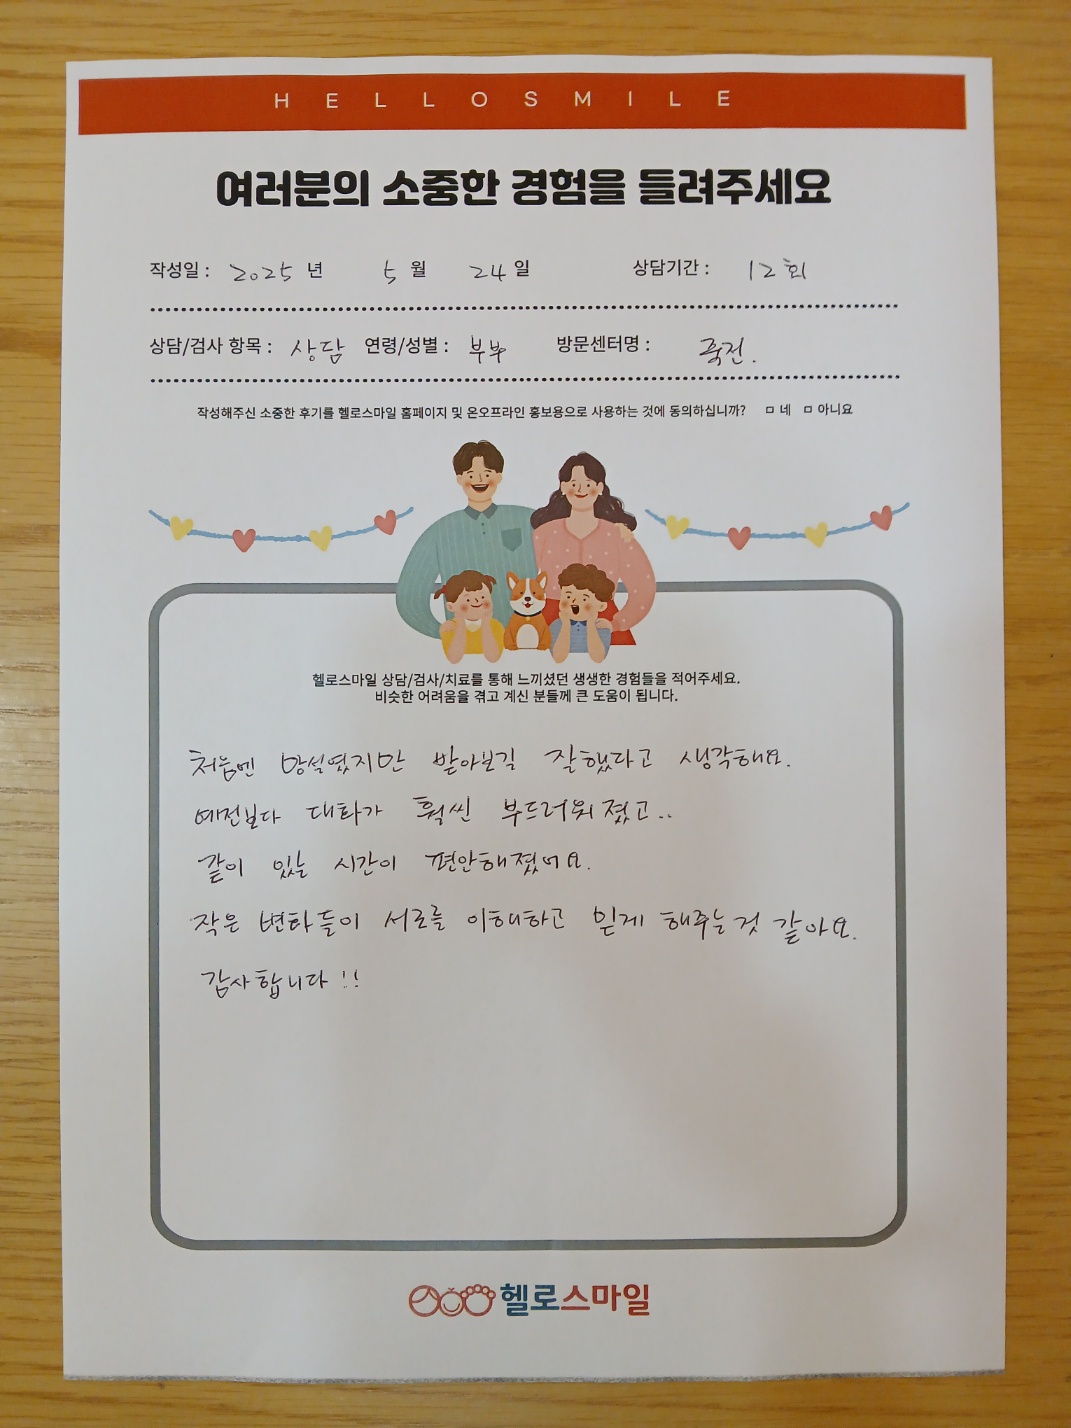 HELLOSMILE
여러분의 소중한 경험을 들려주세요
작성일 : 2025 년 5 월 24 일 상담기간 : 12회
상담/검사 항목 : 상담 연령/성별 : 부부 방문센터명 : 죽전.
작성해주신 소중한 후기를 헬로스마일 홈페이지 및 온오프라인 홍보용으로 사용하는 것에 동의하십니까? ㅁ 네 ㅁ 아니요
헬로스마일 상담/검사/치료를 통해 느끼셨던 생생한 경험들을 적어주세요.
비슷한 어려움을 겪고 계신 분들께 큰 도움이 됩니다.
처음엔 망설였지만 받아보길 잘했다고 생각해요.
예전보다 대화가 훨씬 부드러워졌고..
같이 있는 시간이 편안해졌어요.
작은 변화들이 서로를 이해하고 믿게 해주는것 같아요.
감사합니다!!
헬로스마일